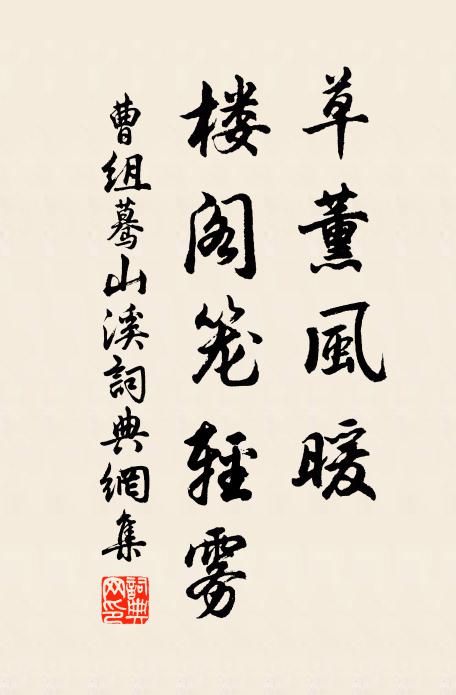 草薰風暖
楼阁笼輕雾
曹组蓦山溪詞典網集
詞典网印